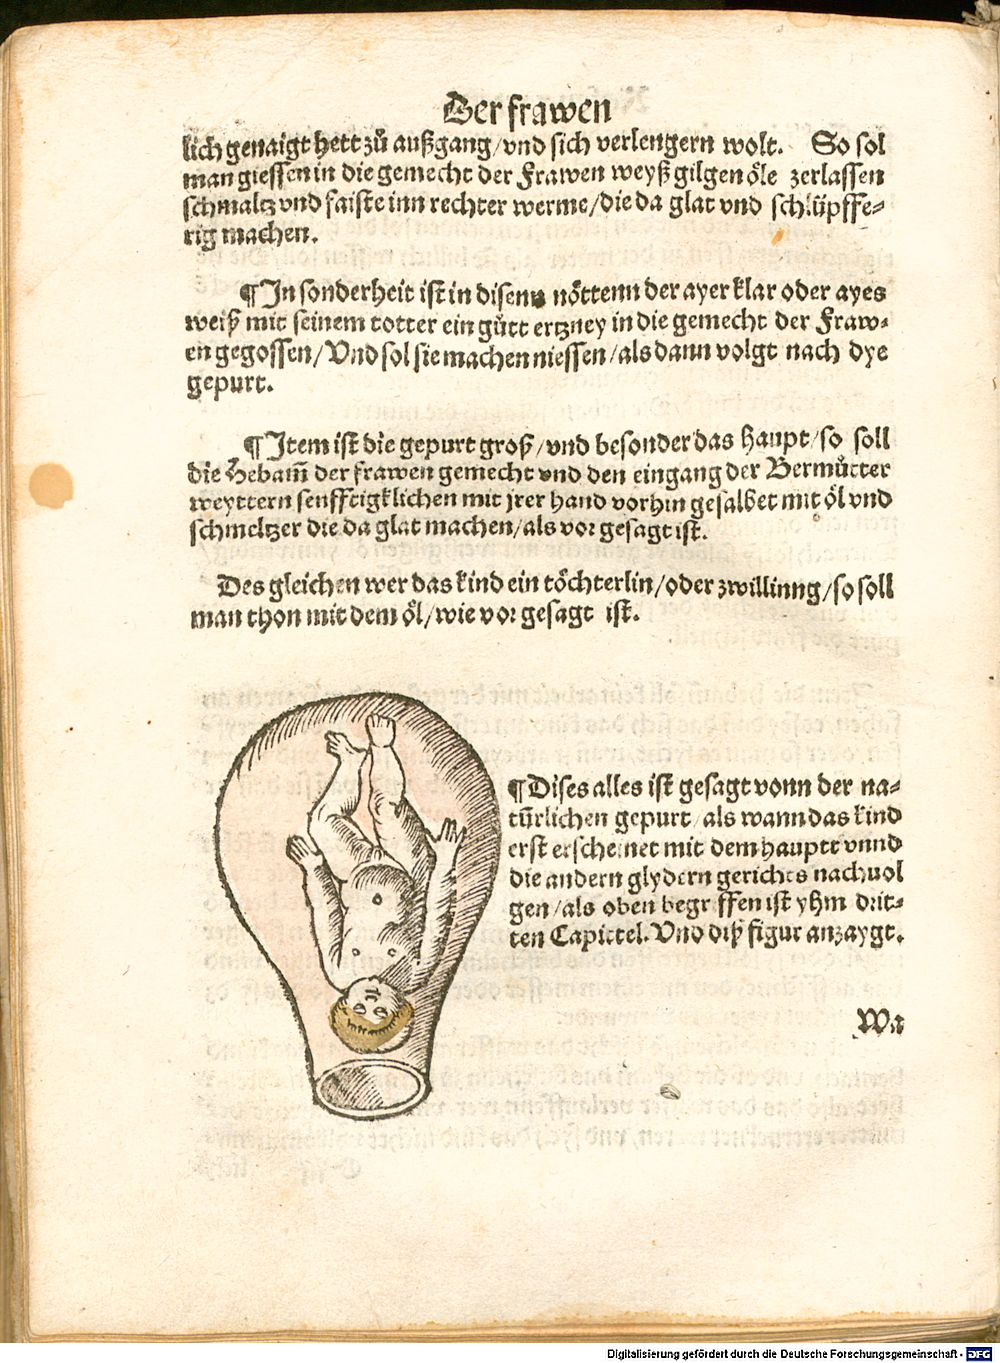 Der frawen
lich genaigt hett zů außgang/vnd sich verlengern wolt. So sol
man giessen in die gemecht der Frawen weyß gilgen öle zerlassen
schmaltz vnd faiste inn rechter werme/die da glat vnd schlüpffe-
rig machen.
¶ In sonderheit ist in disenn nöttenn der ayer klar oder ayes
weiß mit seinem totter ein gůtt ertzney in die gemecht der Fraw-
en gegossen/Vnd sol sie machen niessen/als dann volgt nach dye
gepurt.
¶ Item ist die gepurt groß/vnd besonder das haupt/so soll
die Hebam̃ der frawen gemecht vnd den eingang der Bermůtter
weyttern senfftigklichen mit jrer hand vorhin gesalbet mit öl vnd
schmeltzer die da glat machen/als vor gesagt ist.
Des gleichen wer das kind ein töchterlin/oder zwillinng/so soll
man thon mit dem öl/wie vor gesagt ist.
¶ Dises alles ist gesagt vonn der na-
türlichen gepurt/als wann das kind
erst erscheinet mit dem hauptt vnnd
die andern glydern gerichts nachuol
gen/als oben begriffen ist yhm drit-
ten Capittel. Vnd diß figur anzaygt.
Wa
Digitalisierung gefördert durch die Deutsche Forschungsgemeinschaft - DFG